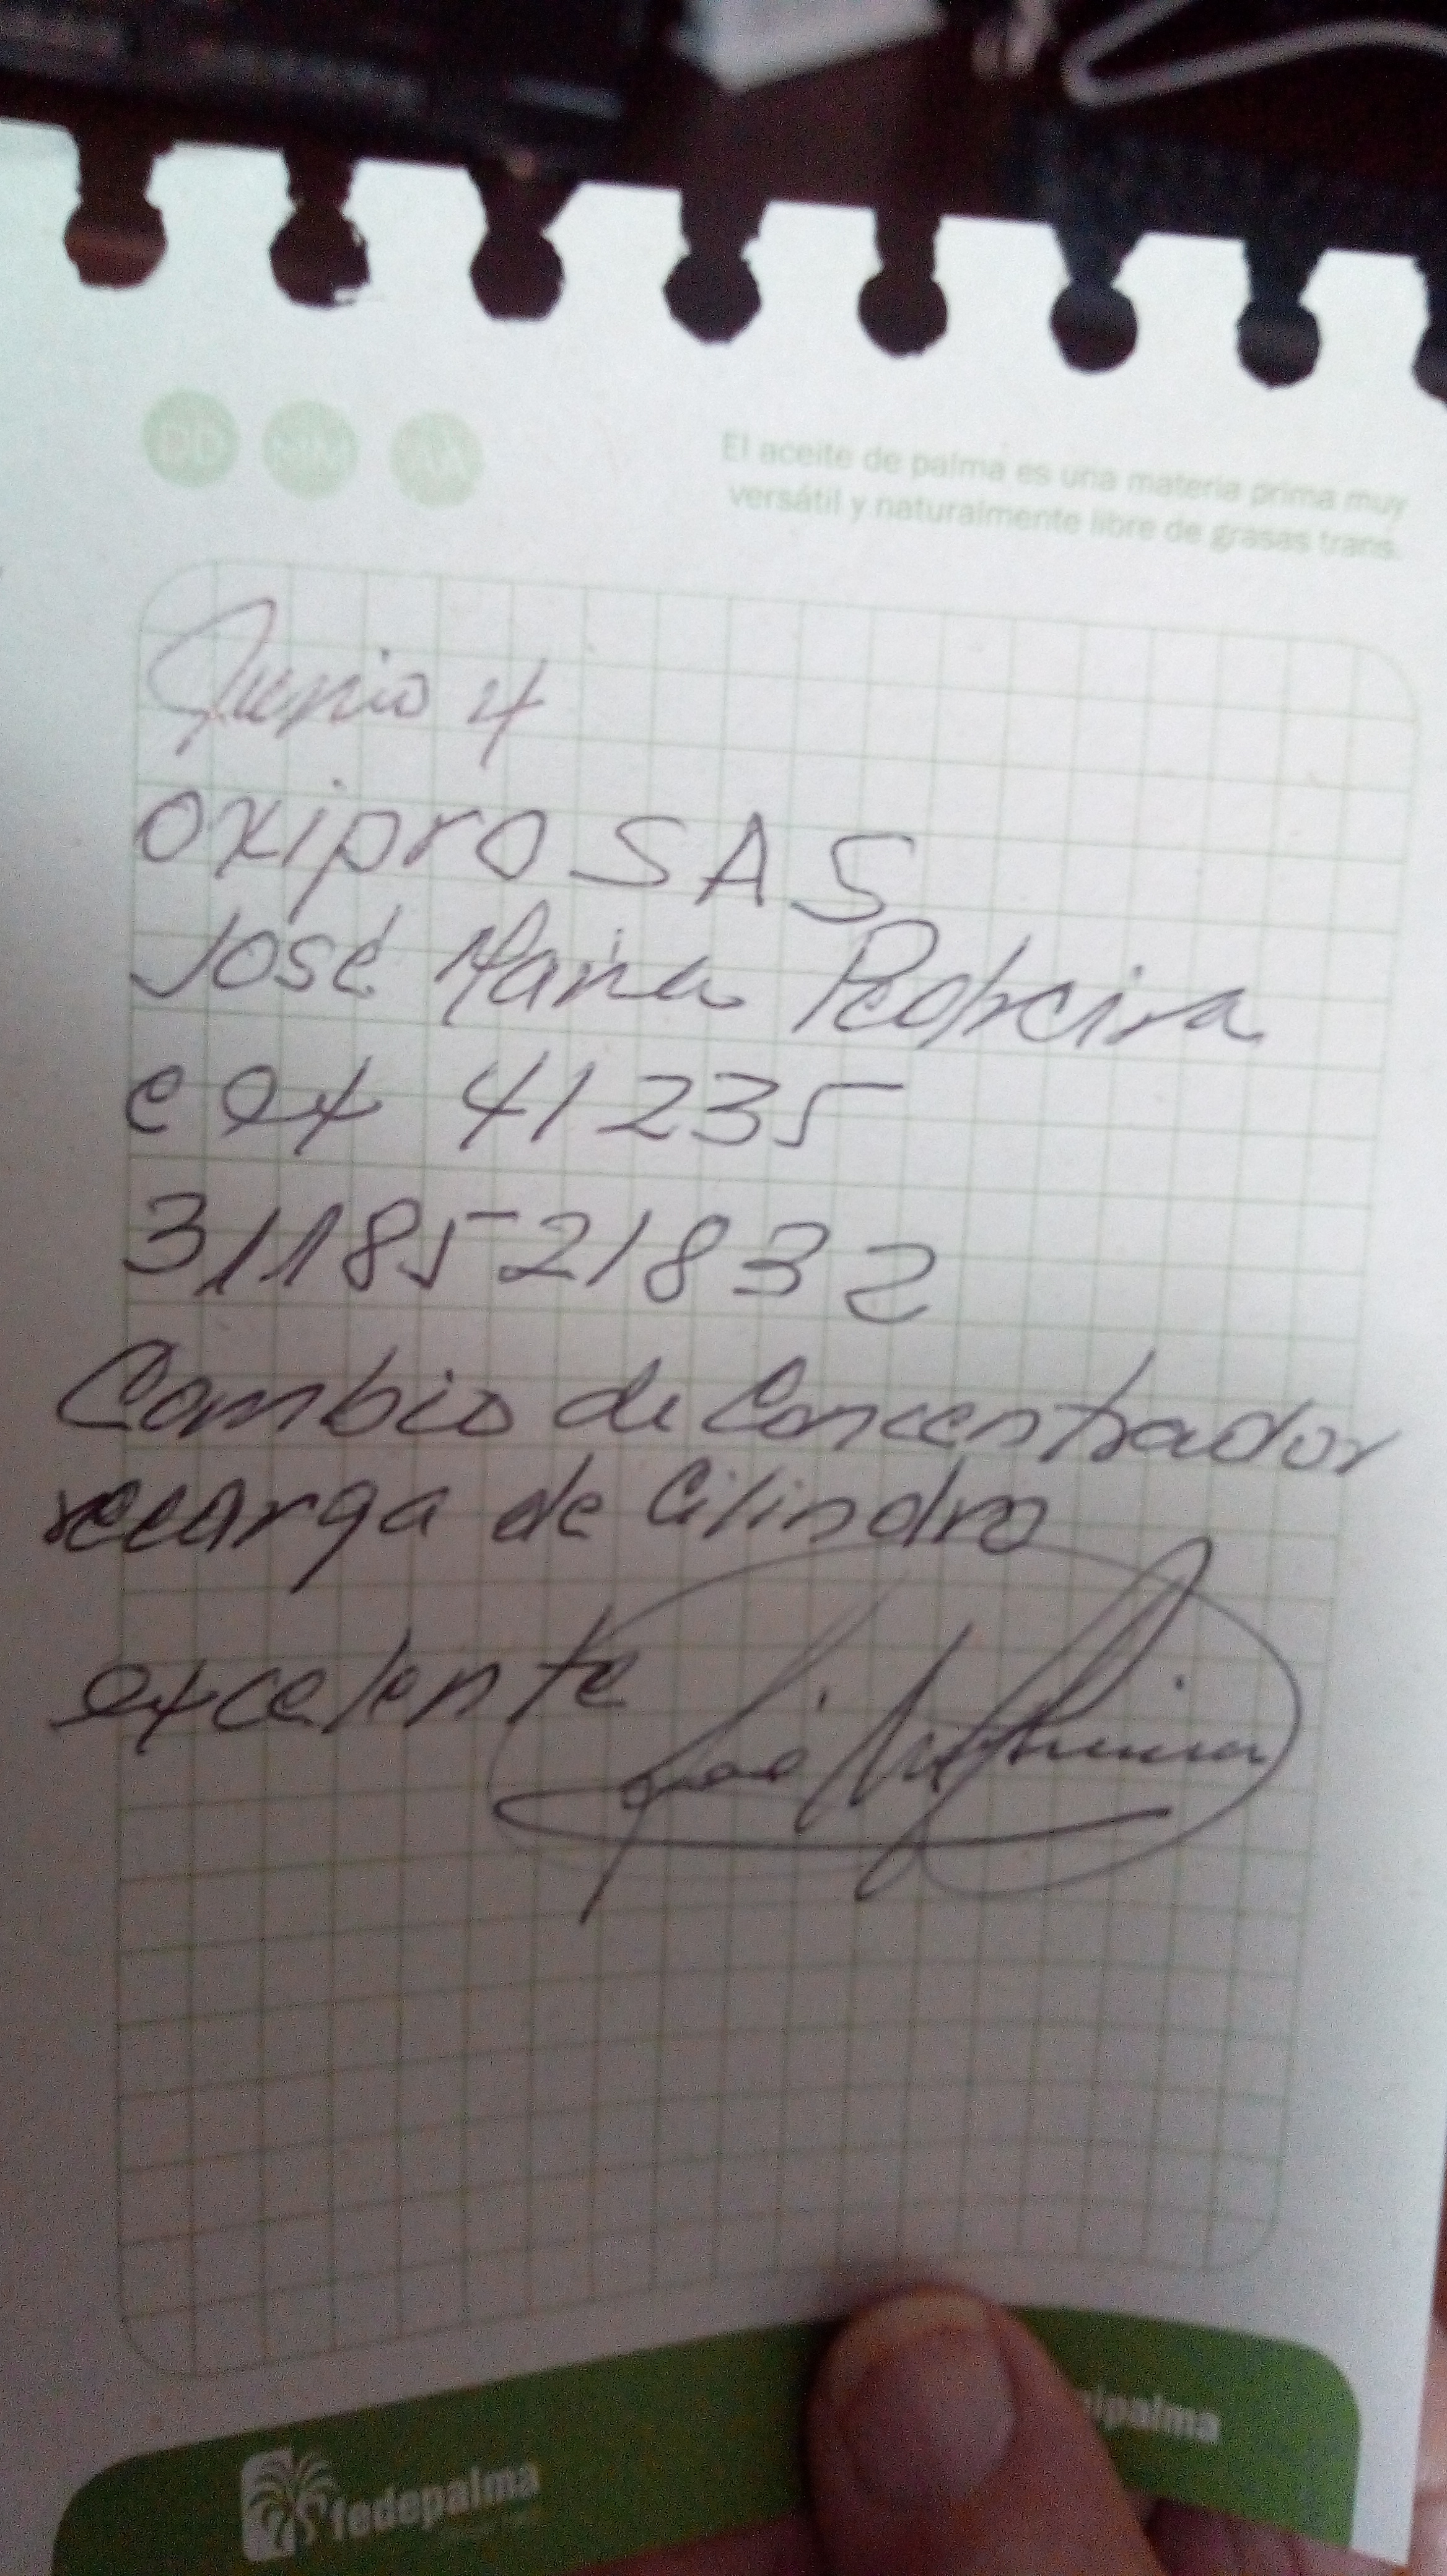 DD MM AA
El aceite de palma es una materia prima muy
versátil y naturalmente libre de grasas trans.
Junio 4
oxipro SAS
José Maria Pedreira
c ex 41235
3118521832
Cambio de Concentrador
recarga de Cilindro
excelente
fedepalma